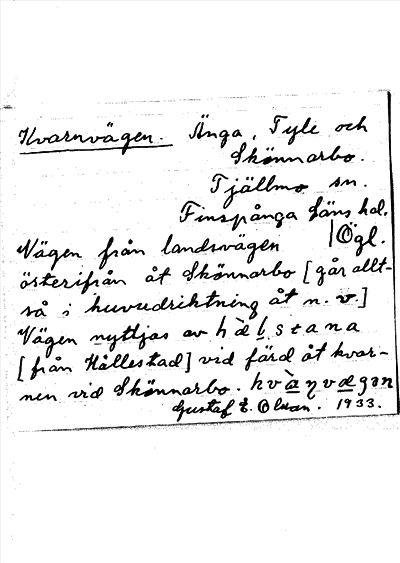 Kvarnvägen. Änga, Tyle och
Skönnarbo.
Tjällmo sn.
Finspånga läns hd.
Ögl.
Vägen från landsvägen
österifrån åt Skönnarbo [går allt-
så i huvudriktning åt n. v.]
Vägen nyttjas av hälstana
[från Hällestad] vid färd åt kvar-
nen vid Skönnarbo. kvàn̥vægən
Gustaf E. Olsson. 1933.